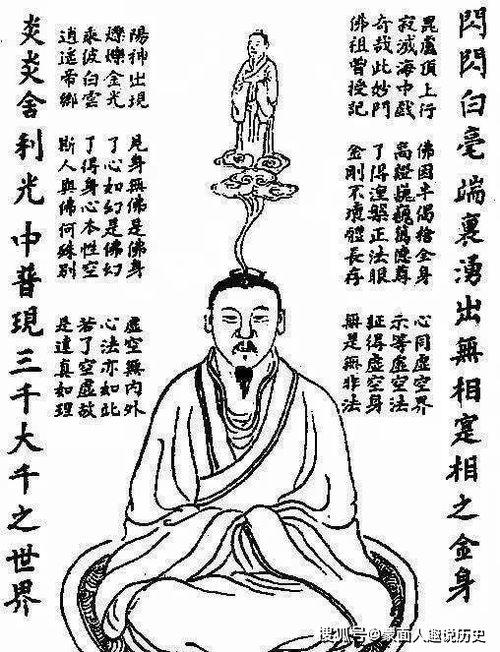 閃閃白毫端裏湧出無相寔相之金身
毘盧頂上行
寂滅海中戲
奇哉此妙門
佛祖曾授記
佛因半偈捨全身
高證巍巍萬德尊
了得涅槃正法眼
金剛不壞體長存
心同虛空界
示等虛空法
証得虛空身
無是無非法
陽神出現
爍爍金光
乘彼白雲
逍遙帝鄉
見身無佛是佛身
了心如幻是佛幻
了得身心本性空
斯人與佛何殊別
虛空無內外
心法亦如此
若了空虛故
是達真如理
炎炎舍利光中普現三千大千之世界
搜狐号@蒙面人趣说历史